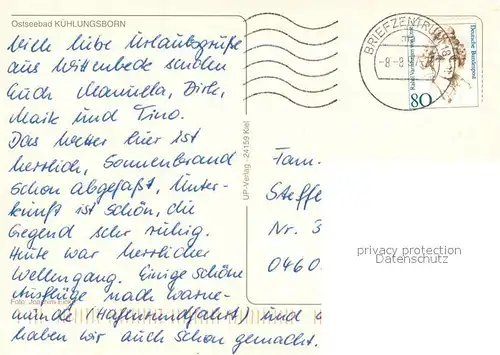 Ostseebad KÜHLUNGSBORN
Viele liebe Urlaubsgrüße
aus Wittenbeck senden
Euch Manuela, Dirk,
Maik und Tino.
Das Wetter hier ist
herrlich, Sonnenbrand
schon abgefaßt, Unter-
kunft ist schön, die
Gegend sehr ruhig.
Heute war herrlicher
Wellengang. Einige schöne
Ausflüge nach Warne-
münde (Hafenrundfahrt) und
haben wir auch schon gemacht.
Foto: Joachim
UP-Verlag · 24159 Kiel
BRIEFZENTRUM 18
Deutsche Bundespost
80
Fam.
Steffe
Nr. 3
0460
privacy protection
Datenschutz